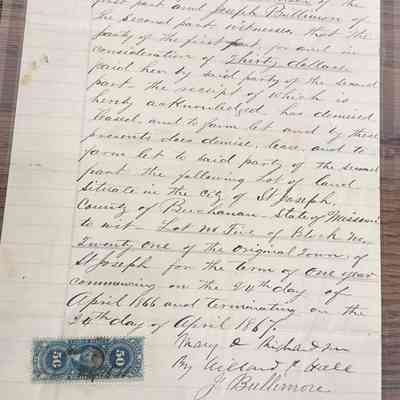 first part and Joseph Bullimore of
the Second part witnesses that the
party of the first part, for and in
consideration of Thirty dollars
paid her by said party of the second
part - the receipt of which is
hereby acknowledged has demised
leased, and to farm let and by these
presents does demise, lease, and to
farm let to said party of the second
part the following Lot of land
Situate in the City of St Joseph,
County of Buchanan - State of Missouri
to wit - Lot No Five of Block No
Twenty One of the Original Town of
St Joseph for the term of One year
commencing on the 20th day of
April 1866 and terminating on the
20th day of April 1867.
Mary D Richardson
By Willard P Hall
J. Bullimore
50 50